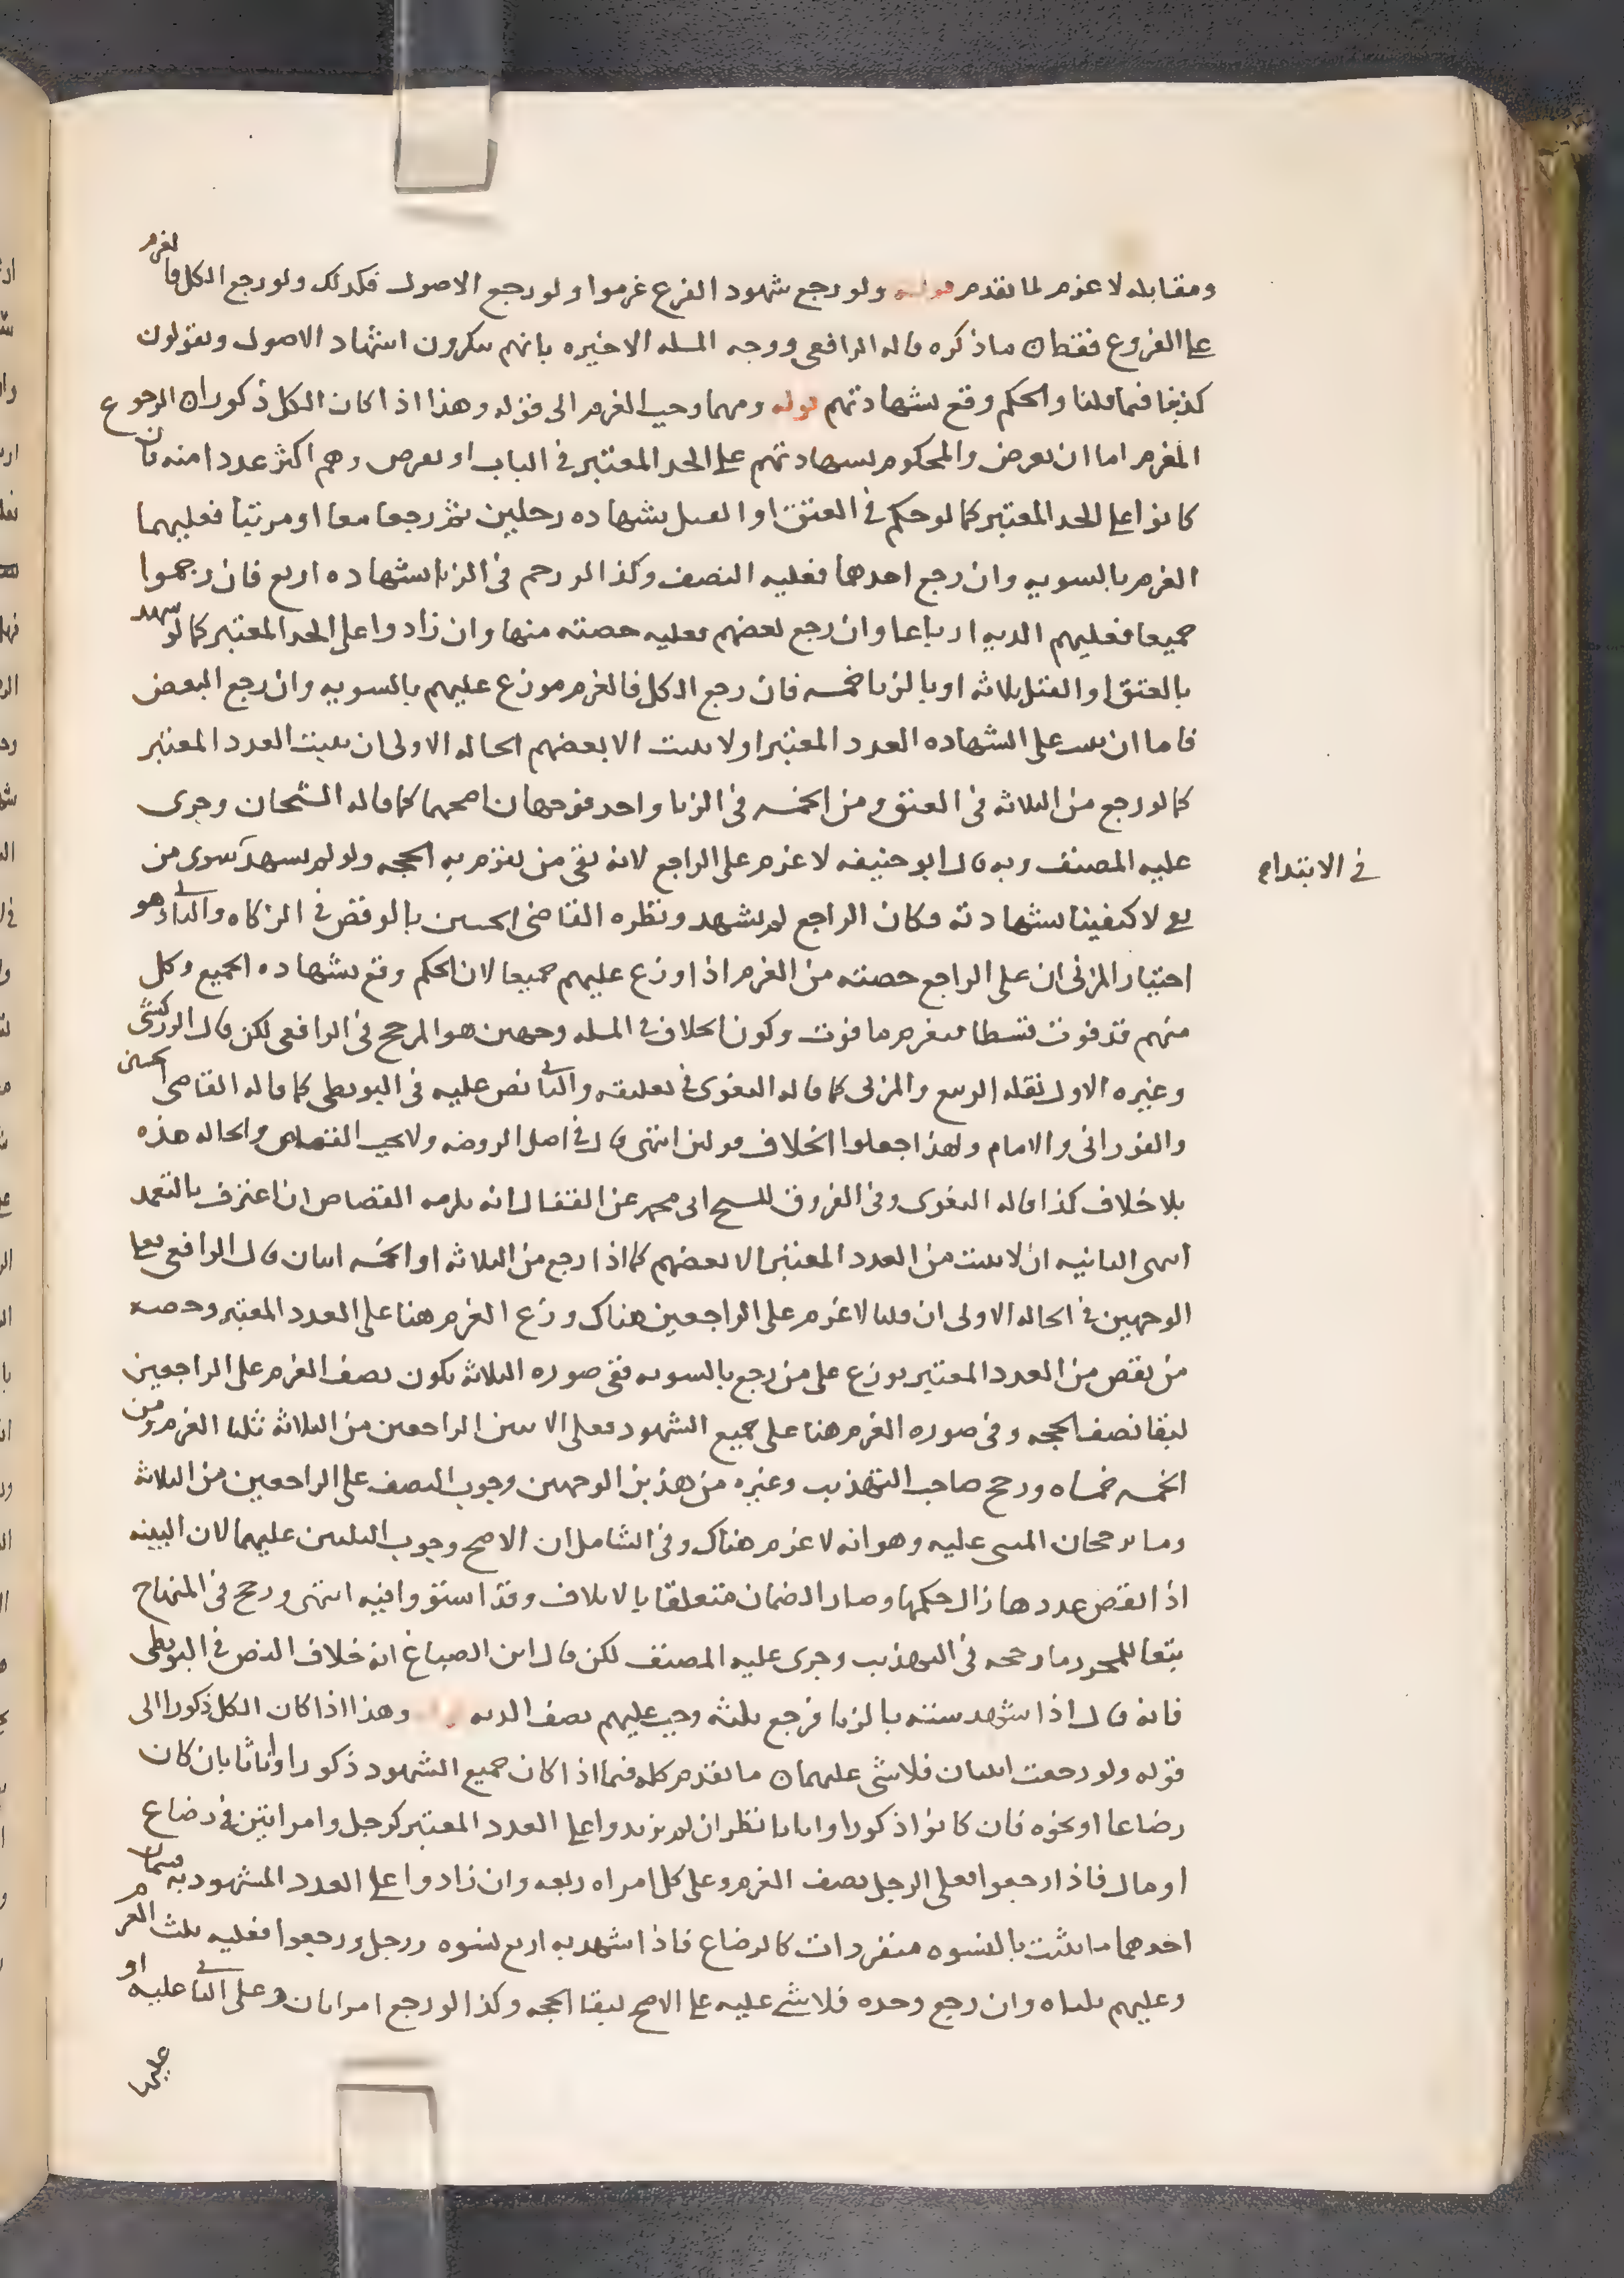 ومقابله لا غرم لما تقدم قوله ولو رجع شهود الفرع غرموا ولو رجع الاصول فكذلك ولو رجع الكل فالغرم
على الفروع فقط ما ذكره قاله الرافعي ووجه المسله الاخيره بانهم ينكرون اشهاد الاصول ويقولون
كذبنا فيما قلنا والحكم وقع بشهادتهم قوله ومهما وجب الغرم الى قوله وهذا اذا كان الكل ذكورا الرجوع
المغرم اما ان يعرض والمحكوم بشهادتهم على الحد المعتبر في الباب او يعرض وهم اكثر عددا منه فان
كانوا على الحد المعتبر كما لو حكم في العتق او القتل بشهاده رجلين ثم رجعا معا او مرتبا فعليهما
الغرم بالسويه وان رجع احدهما فعليه النصف وكذا لو رجم في الزنا بشهاده اربع فان رجعوا
جميعا فعليهم الديه ارباعا وان رجع بعضهم فعليه حصته منها وان زادوا على الحد المعتبر كما لو شهد
بالعتق او القتل ثلاثه او بالزنا خمسه فان رجع الكل فالغرم موزع عليهم بالسويه وان رجع البعض
فاما ان يثبت على الشهاده العدد المعتبر او لا يثبت الا بعضهم الحاله الاولى ان يثبت العدد المعتبر
كما لو رجع من الثلاثه في العتق ومن الخمسه في الزنا واحد فوجهان اصحهما كما قاله الشيخان وجرى
عليه المصنف وبه قال ابو حنيفه لا غرم على الراجع لانه بقي من تقوم به الحجه ولو لم يشهد سوى من
في الابتداء
بقي لاكتفينا بشهادته وكان الراجع لم يشهد ونظره القاضي الحسين بالوقص في الزكاه والثاني وهو
اختيار المزني ان على الراجع حصته من الغرم اذا وزع عليهم جميعا لان الحكم وقع بشهاده الجميع وكل
منهم قد فوت قسطا فيغرم ما فوت وكون الخلاف في المسله وجهين هو المرجح في الرافعي لكن قال الزركشي
وغيره الاول نقله الربيع والمزني كما قاله البغوي في تعليقه والثاني نص عليه في البويطي كما قاله القاضي الحسين
والفوراني والامام ولهذا جعلوا الخلاف قولين انتهى قال في اصل الروضه ولا يجب القصاص والحاله هذه
بلا خلاف كذا قاله البغوي وفي الفروق للشيخ ابي محمد عن القفال انه يلزمه القصاص ان اعترف بالتعمد
انتهى الثانيه ان لا يثبت من العدد المعتبر الا بعضهم كما اذا رجع من الثلاثه او الخمسه اثنان قال الرافعي فعلى
الوجهين في الحاله الاولى ان قلنا لا غرم على الراجعين هناك وزع الغرم هنا على العدد المعتبر وحصه
من نقص من العدد المعتبر يوزع على من رجع بالسويه ففي صوره الثلاثه يكون نصف الغرم على الراجعين
لبقا نصف الحجه وفي صوره الغرم هنا على جميع الشهود فعلى الاثنين الراجعين من الثلاثه ثلثا الغرم ومن
الخمسه خمساه ورجح صاحب التهذيب وغيره من هذين الوجهين وجوب النصف على الراجعين من الثلاثه
وما يرجحان المبني عليه وهو انه لا غرم هناك وفي الشامل ان الاصح وجوب الثلثين عليهما لان البينه
اذا نقص عددها زال حكمها وصار الضمان متعلقا بالاتلاف وقد استووا فيه انتهى ورجح في المنهاج
تبعا للمحرر ما رجحه في التهذيب وجرى عليه المصنف لكن قال ابن الصباغ انه خلاف النص في البويطي
فانه قال اذا شهد سته بالزنا فرجع ثلثه وجب عليهم نصف الديه قوله وهذا اذا كان الكل ذكورا الى
قوله ولو رجعت اثنتان فلا شى عليهما ما تقدم كله فيما اذا كان جميع الشهود ذكورا او اناثا بان كان
رضاعا او نحوه فان كانوا ذكورا واناثا نظر ان لم يزيدوا على العدد المعتبر كرجل وامراتين في رضاع
او مال فاذا رجعوا فعلى الرجل نصف الغرم وعلى كل امراه ربعه وان زادوا على العدد المشهود به قسمان
احدهما ما يثبت بالنسوه منفردات كالرضاع فاذا شهد به اربع نسوه ورجل ورجعوا فعليه ثلث الغرم
وعليهم ثلثاه وان رجع وحده فلا شى عليه على الاصح لبقا الحجه وكذا لو رجع امراتان وعلى الثاني عليه او
عليهما